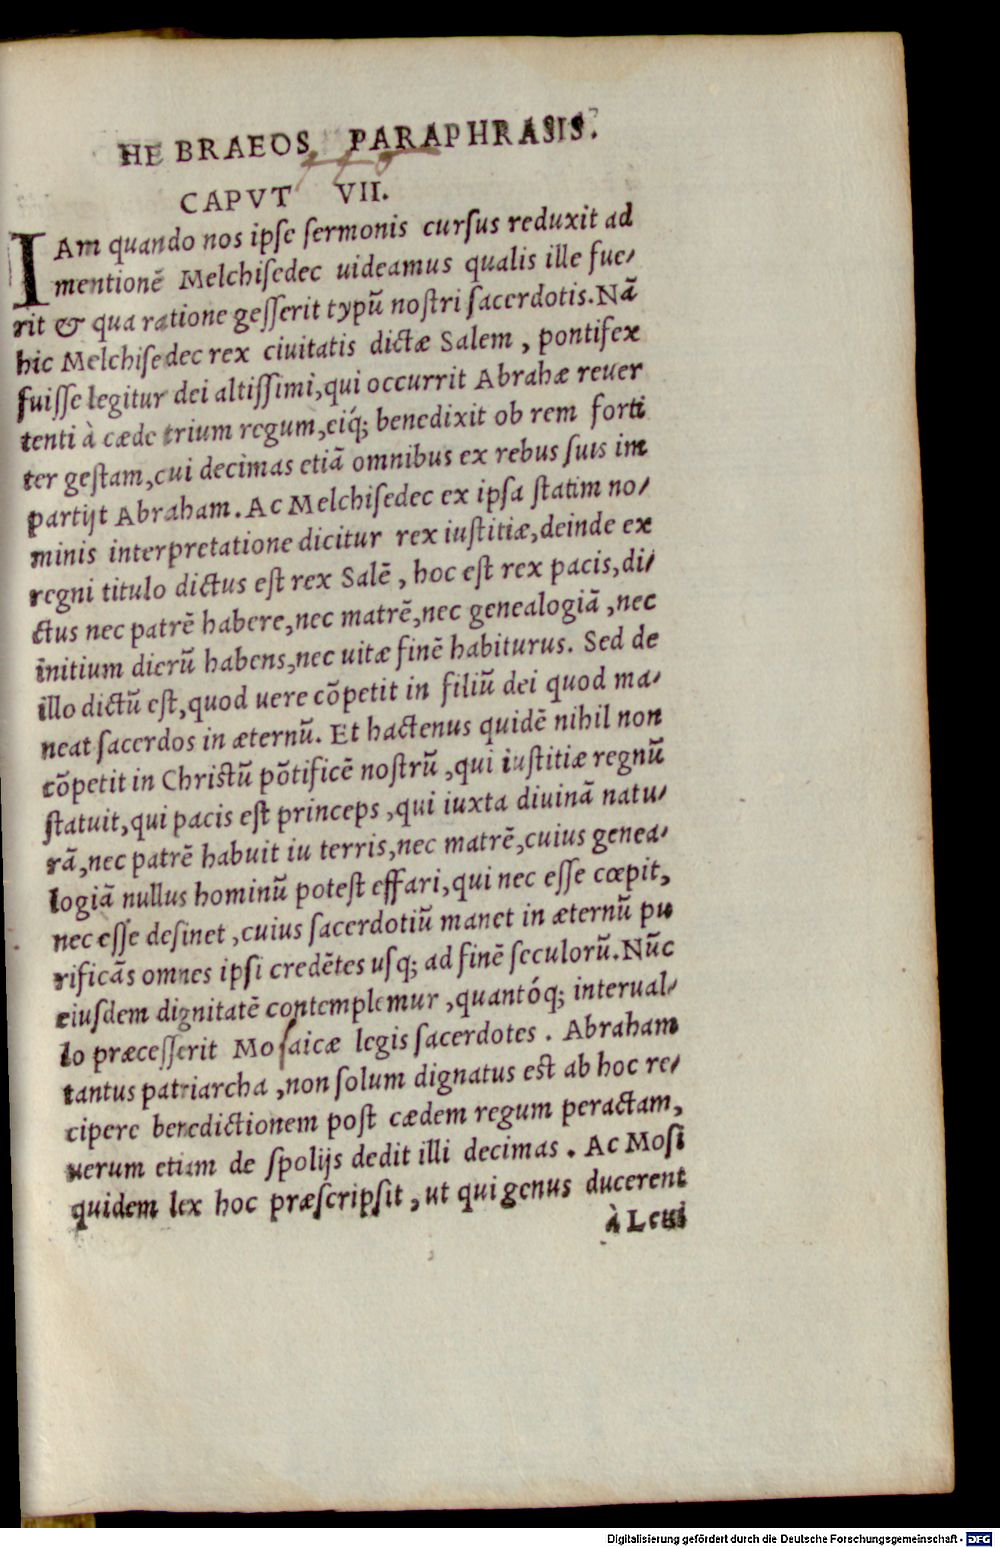 HEBRAEOS PARAPHRASIS.
CAPVT VII.
IAm quando nos ipse sermonis cursus reduxit ad
mentionẽ Melchisedec uideamus qualis ille fue/
rit & qua ratione gesserit typũ nostri sacerdotis. Nã
hic Melchisedec rex ciuitatis dictæ Salem, pontifex
fuisse legitur dei altissimi, qui occurrit Abrahæ reuer
tenti à cæde trium regum, eiq́; benedixit ob rem forti
ter gestam, cui decimas etiã omnibus ex rebus suis im
partijt Abraham. Ac Melchisedec ex ipsa statim no/
minis interpretatione dicitur rex iustitiæ, deinde ex
regni titulo dictus est rex Salẽ, hoc est rex pacis, di/
ctus nec patrẽ habere, nec matrẽ, nec genealogiã, nec
initium dierũ habens, nec uitæ finẽ habiturus. Sed de
illo dictũ est, quod uere cõpetit in filiũ dei quod ma/
neat sacerdos in æternũ. Et hactenus quidẽ nihil non
cõpetit in Christũ põtificẽ nostrũ, qui iustitiæ regnũ
statuit, qui pacis est princeps, qui iuxta diuinã natu/
rã, nec patrẽ habuit iu terris, nec matrẽ, cuius genea/
logiã nullus hominũ potest effari, qui nec esse cœpit,
nec esse desinet, cuius sacerdotiũ manet in æternũ pu
rificãs omnes ipsi credẽtes usq; ad finẽ seculorũ. Nũc
eiusdem dignitatẽ contemplemur, quantóq; interual/
lo præcesserit Mosaicæ legis sacerdotes. Abraham
tantus patriarcha, non solum dignatus est ab hoc re/
cipere benedictionem post cædem regum peractam,
uerum etiam de spolijs dedit illi decimas. Ac Mosi
quidem lex hoc præscripsit, ut qui genus ducerent
à Leui
Digitalisierung gefördert durch die Deutsche Forschungsgemeinschaft - DFG